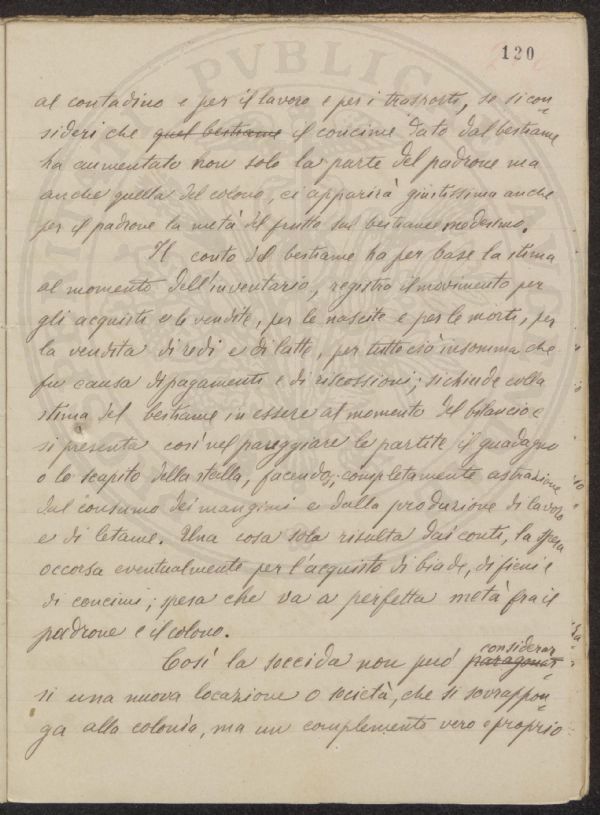 120
al contadino e per il lavoro e per i trasporti, se si con=
sideri che quel bestiame il concime dato dal bestiame
ha aumentato non solo la parte del padrone ma
anche quella del colono, ci apparirà giustissima anche
per il padrone la metà del frutto sul bestiame medesimo.
Il conto del bestiame ha per base la stima
al momento dell'inventario, registra il movimento per
gli acquisti e le vendite, per le nascite e per le morti, per
la vendita di redi e di latte, per tutto ciò insomma che
fu causa di pagamenti e di riscossioni; si chiude colla
stima del bestiame in essere al momento del bilancio e
si presenta così nel pareggiare le partite il guadagno
o lo scapito della stalla, facendo completamente astrazione
dal consumo dei mangimi e dalla produzione di lavoro
e di letame. Una cosa sola risulta dai conti, la spesa
occorsa eventualmente per l'acquisto di biade, di fieni e
di concimi; spesa che va a perfetta metà fra il
padrone e il colono.
Così la soccida non può paragonar= considerar=
si una nuova locazione o società, che si sovrappon=
ga alla colonìa, ma un complemento vero e proprio